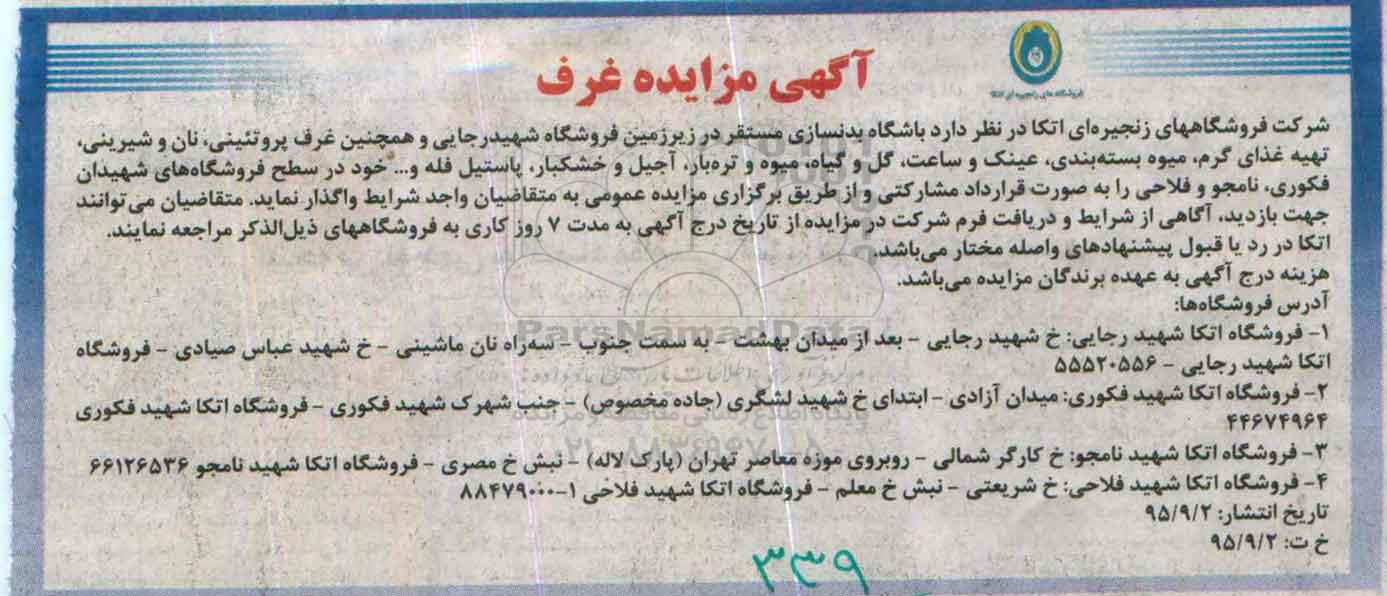 فروشگاه های زنجیره ای اتکا
آگهی مزایده غرف
شرکت فروشگاههای زنجیره‌ای اتکا در نظر دارد باشگاه بدنسازی مستقر در زیرزمین فروشگاه شهیدرجایی و همچنین غرف پروتئینی، نان و شیرینی،
تهیه غذای گرم، میوه بسته‌بندی، عینک و ساعت، گل و گیاه، میوه و تره‌بار، آجیل و خشکبار، پاستیل فله و... خود در سطح فروشگاه‌های شهیدان
فکوری، نامجو و فلاحی را به صورت قرارداد مشارکتی و از طریق برگزاری مزایده عمومی به متقاضیان واجد شرایط واگذار نماید. متقاضیان می‌توانند
جهت بازدید، آگاهی از شرایط و دریافت فرم شرکت در مزایده از تاریخ درج آگهی به مدت ۷ روز کاری به فروشگاههای ذیل‌الذکر مراجعه نمایند.
اتکا در رد یا قبول پیشنهادهای واصله مختار می‌باشد.
هزینه درج آگهی به عهده برندگان مزایده می‌باشد.
آدرس فروشگاه‌ها:
۱- فروشگاه اتکا شهید رجایی: خ شهید رجایی - بعد از میدان بهشت - به سمت جنوب - سه‌راه نان ماشینی - خ شهید عباس صیادی - فروشگاه
اتکا شهید رجایی - ۵۵۵۲۰۵۵۶
۲- فروشگاه اتکا شهید فکوری: میدان آزادی - ابتدای خ شهید لشگری (جاده مخصوص) - جنب شهرک شهید فکوری - فروشگاه اتکا شهید فکوری
۴۴۶۷۴۹۶۴
۳- فروشگاه اتکا شهید نامجو: خ کارگر شمالی - روبروی موزه معاصر تهران (پارک لاله) - نبش خ مصری - فروشگاه اتکا شهید نامجو ۶۶۱۲۶۵۳۶
۴- فروشگاه اتکا شهید فلاحی: خ شریعتی - نبش خ معلم - فروشگاه اتکا شهید فلاحی ۱-۸۸۴۷۹۰۰۰
تاریخ انتشار: ۹۵/۹/۲
خ ت: ۹۵/۹/۲
۳۳۹
ParsNamadData